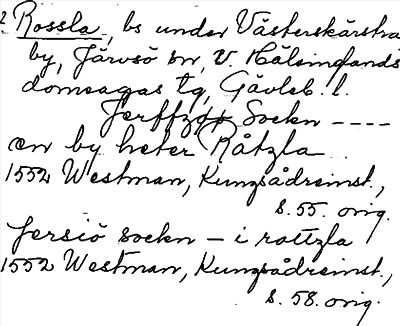 2 Rossla, bs under Västerskärstra
by, Järvsö sn, V. Hälsinglands
domsagas tg, Gävleb. l.
Jerffzöö Sockn ----
en by heter Råtzla
1552 Westman, Kungsådreinst.,
s. 55. orig.
Jersiö sockn – i rottzla
1552 Westman, Kungsådreinst.,
s. 58. orig.